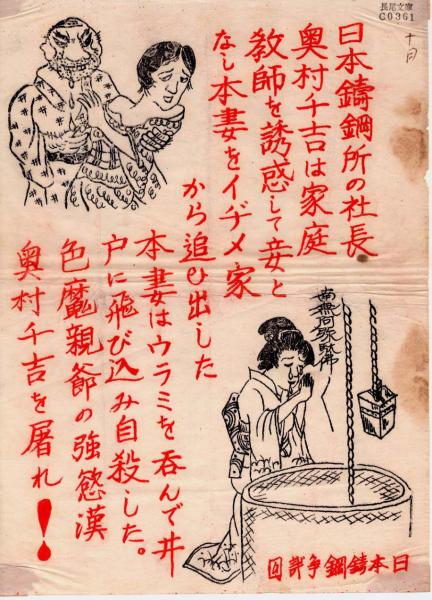 長尾文庫
C0361
日本鑄鋼所の社長
奥村千吉は家庭
教師を誘惑して妾と
なし本妻をイヂメ家
から追ひ出した
本妻はウラミを呑んで井
戸に飛び込み自殺した。
色魔親爺の強慾漢
奥村千吉を屠れ！
南無阿弥陀佛
日本鑄鋼争議団